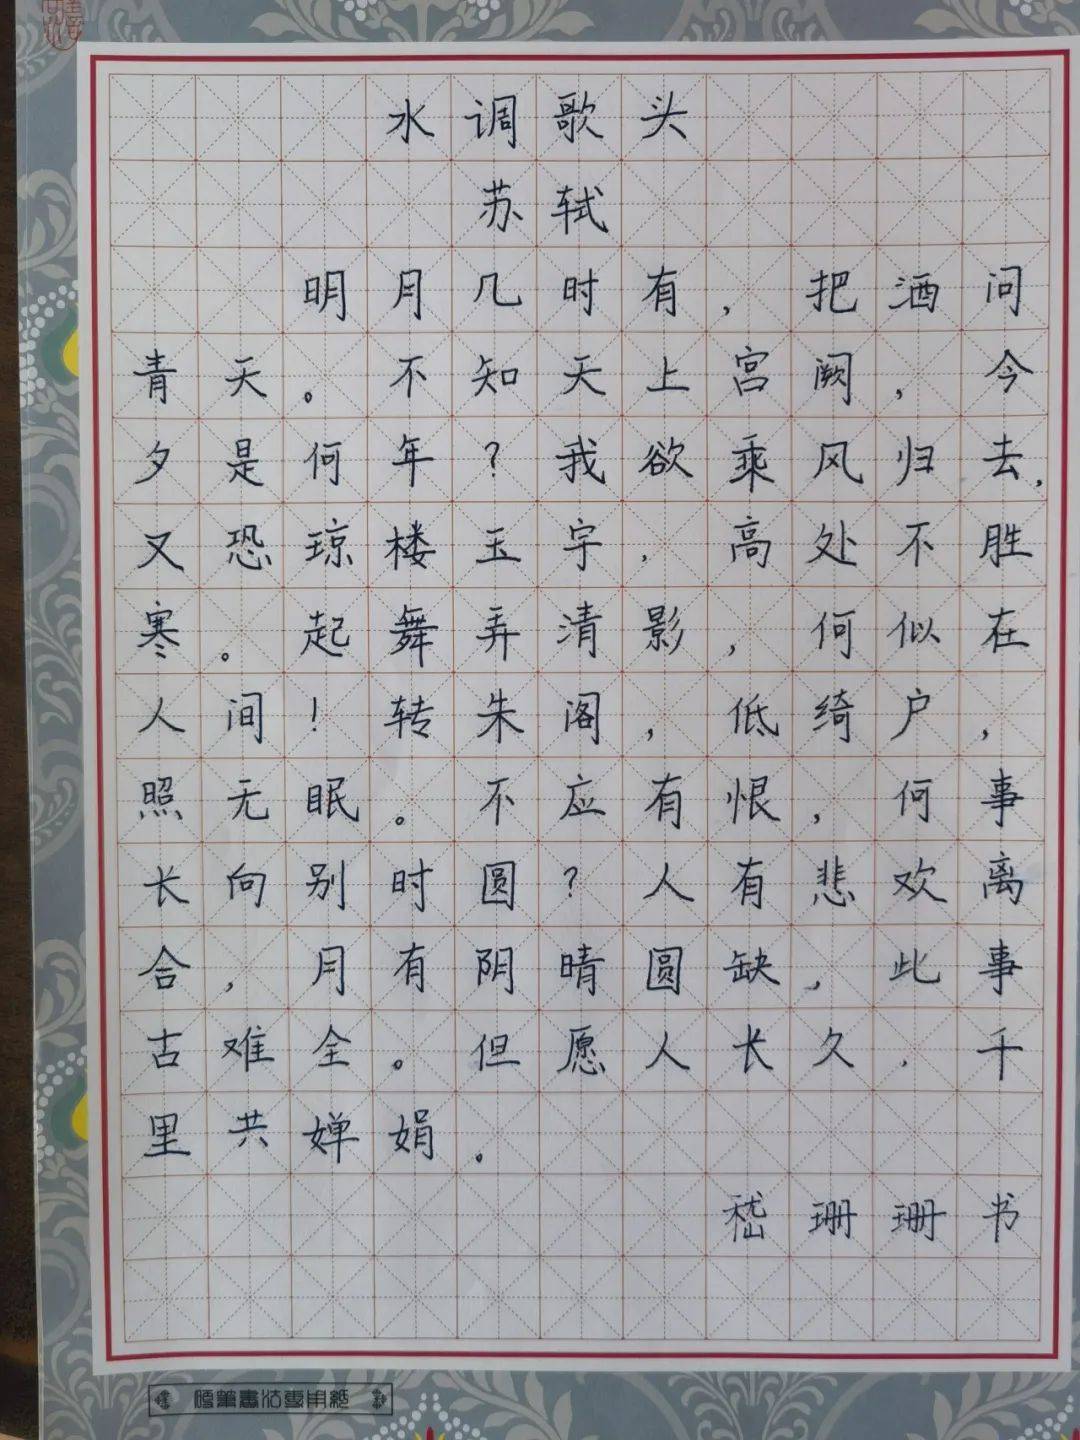 水调歌头
苏轼
明月几时有，把酒问
青天。不知天上宫阙，今
夕是何年？我欲乘风归去，
又恐琼楼玉宇，高处不胜
寒。起舞弄清影，何似在
人间！转朱阁，低绮户，
照无眠。不应有恨，何事
长向别时圆？人有悲欢离
合，月有阴晴圆缺，此事
古难全。但愿人长久，千
里共婵娟。
嵇珊珊书
硬笔书法专用纸